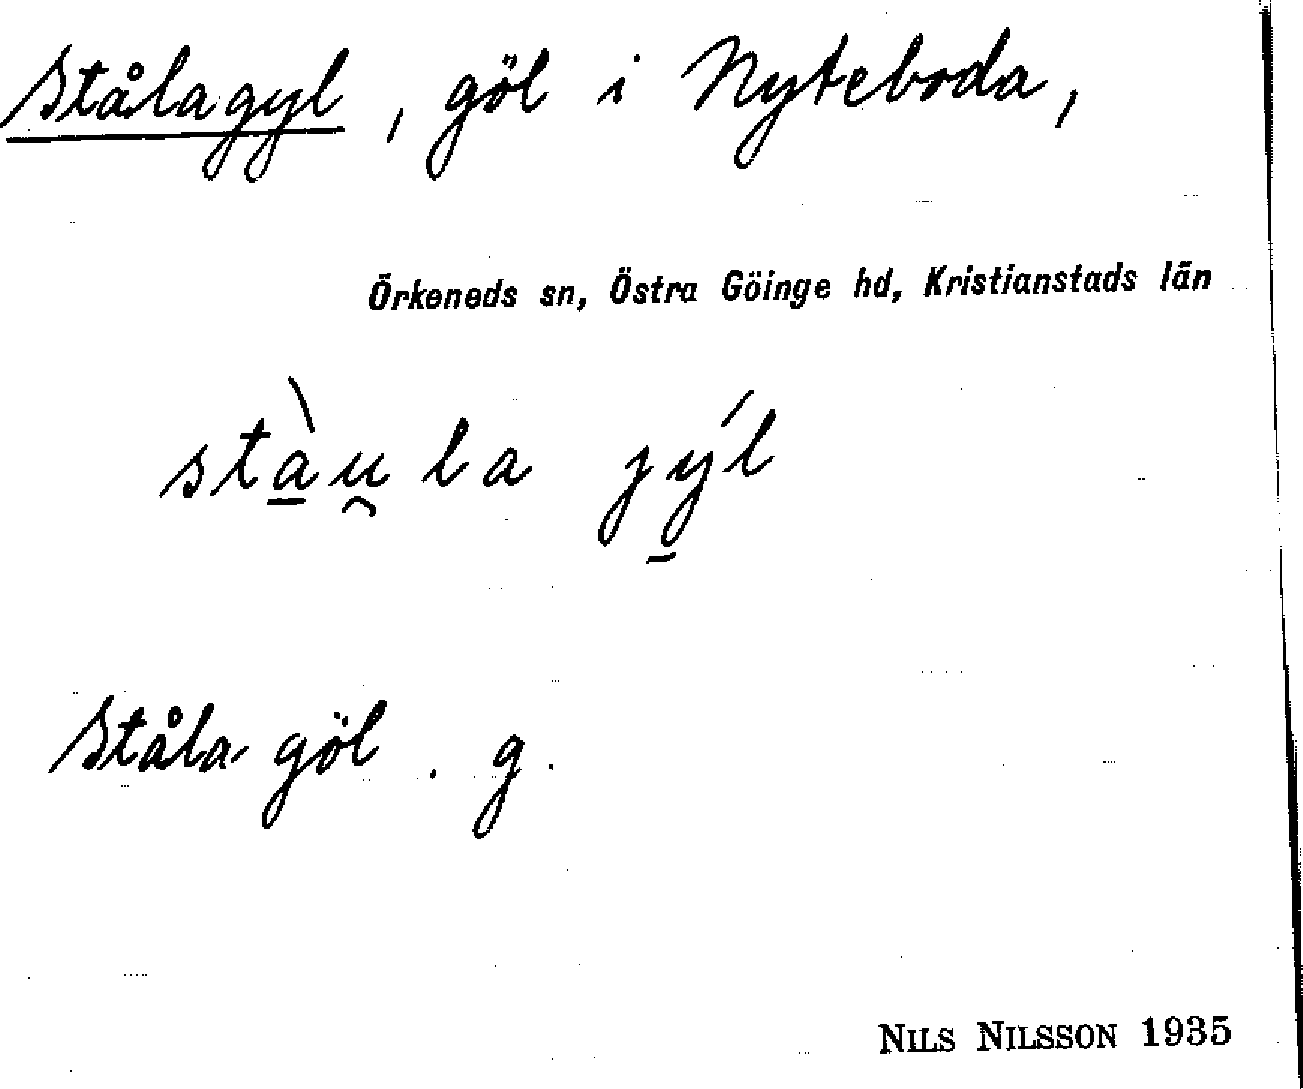 Stålagyl, göl i Nyteboda,
Örkeneds sn, Östra Göinge hd, Kristianstads län
stà̠u̯la jý̠l
Ståla-göl. g.
NILS NILSSON 1935